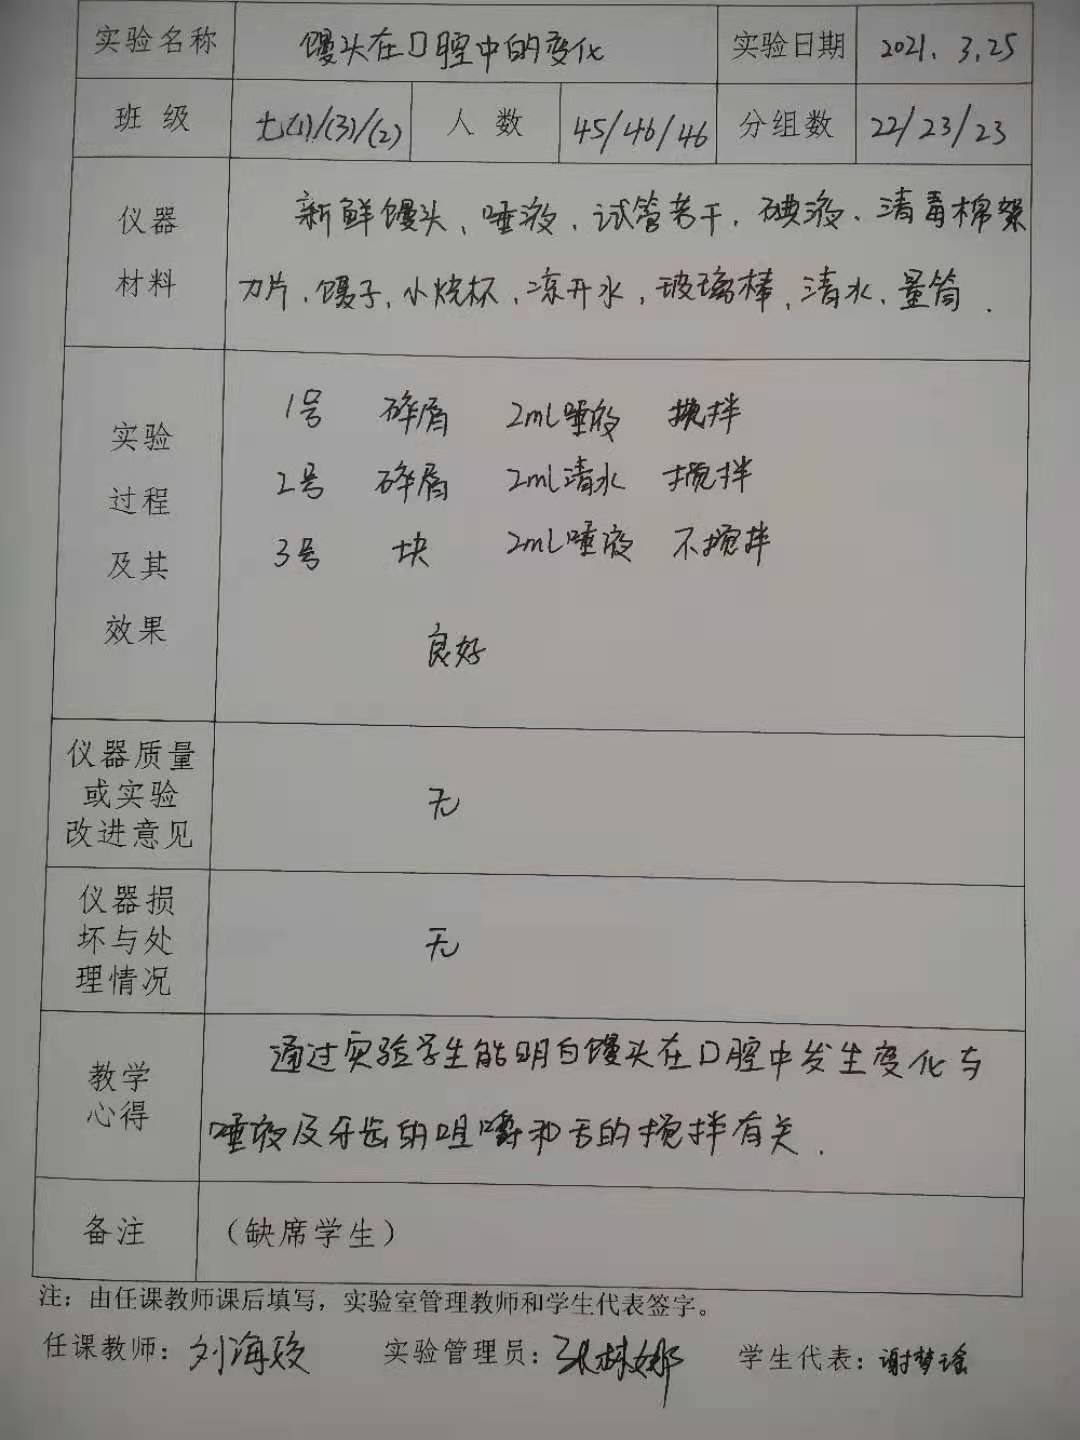 实验名称 馒头在口腔中的变化 实验日期 2021.3.25
班级 七(1)/(3)/(2) 人数 45/46/46 分组数 22/23/23
仪器
材料
新鲜馒头、唾液、试管若干、碘液、消毒棉絮
刀片、镊子、小烧杯、凉开水、玻璃棒、清水、量筒.
实验
过程
及其
效果
1号 碎屑 2ml唾液 搅拌
2号 碎屑 2ml清水 搅拌
3号 块 2ml唾液 不搅拌
良好
仪器质量
或实验
改进意见
无
仪器损
坏与处
理情况
无
教学
心得
通过实验学生能明白馒头在口腔中发生变化与
唾液及牙齿的咀嚼和舌的搅拌有关.
备注 (缺席学生)
注：由任课教师课后填写，实验室管理教师和学生代表签字。
任课教师：刘海 实验管理员：张 娜 学生代表：谢梦瑶